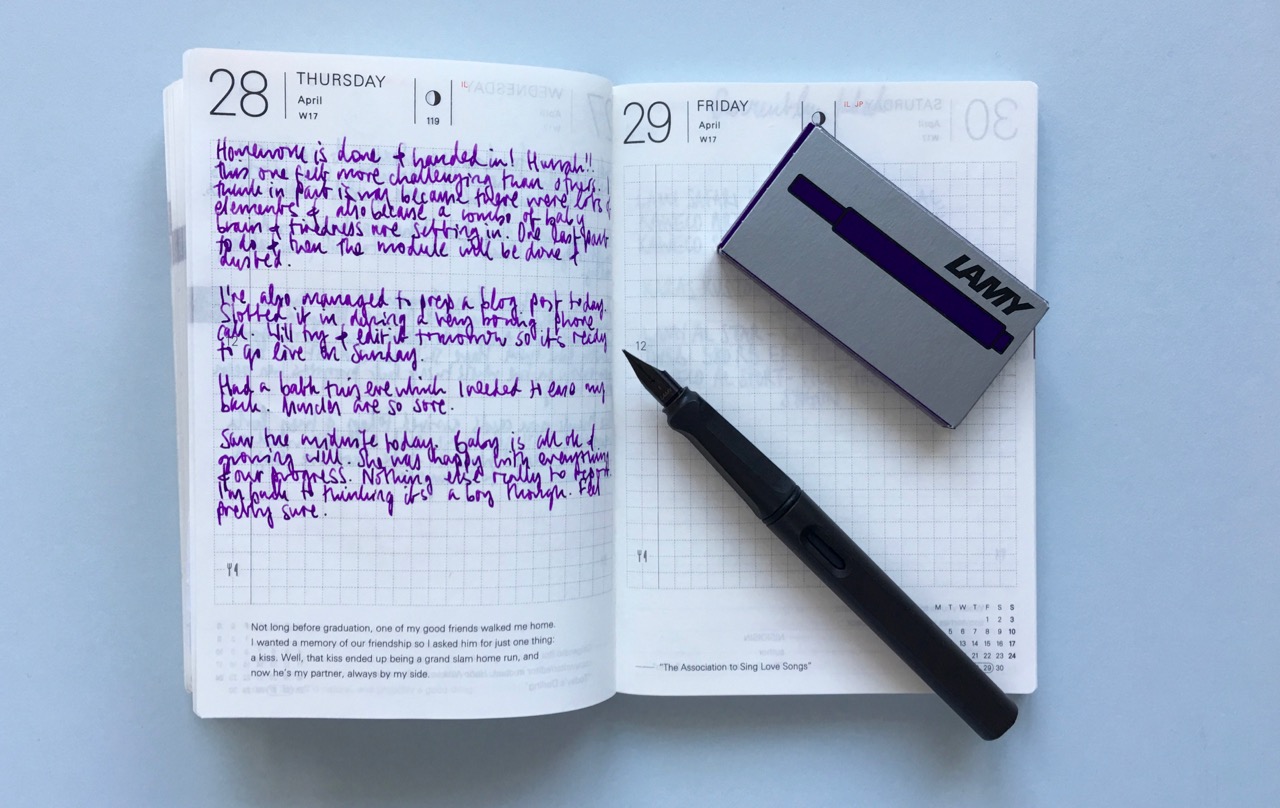 28 THURSDAY
April
W17
119
IL
Homework is done & handed in! Hurrah!!
This one felt more challenging than others. I
think in part is was because there were lots of
elements & also because a combo of baby
brain & tiredness are setting in. One last part
to do & then the module will be done &
dusted.
I've also managed to prep a blog post today.
Slotted it in during a very boring phone
call. Will try & edit it tomorrow so it's ready
to go live on Sunday.
Had a bath this eve which I needed to ease my
back. Muscles are so sore.
Saw the midwife today. Baby is all ok &
growing well. She was happy with everything
& our progress. Nothing else really to report.
I'm back to thinking it's a boy though. Feel
pretty sure.
Not long before graduation, one of my good friends walked me home.
I wanted a memory of our friendship so I asked him for just one thing:
a kiss. Well, that kiss ended up being a grand slam home run, and
now he's my partner, always by my side.
29 FRIDAY
April
W17
IL JP
LAMY
12
"The Association to Sing Love Songs"
M T W T F S S
1 2 3
5 6 7 8 9 10
13 14 15 16 17
21 22 23 24
29 30